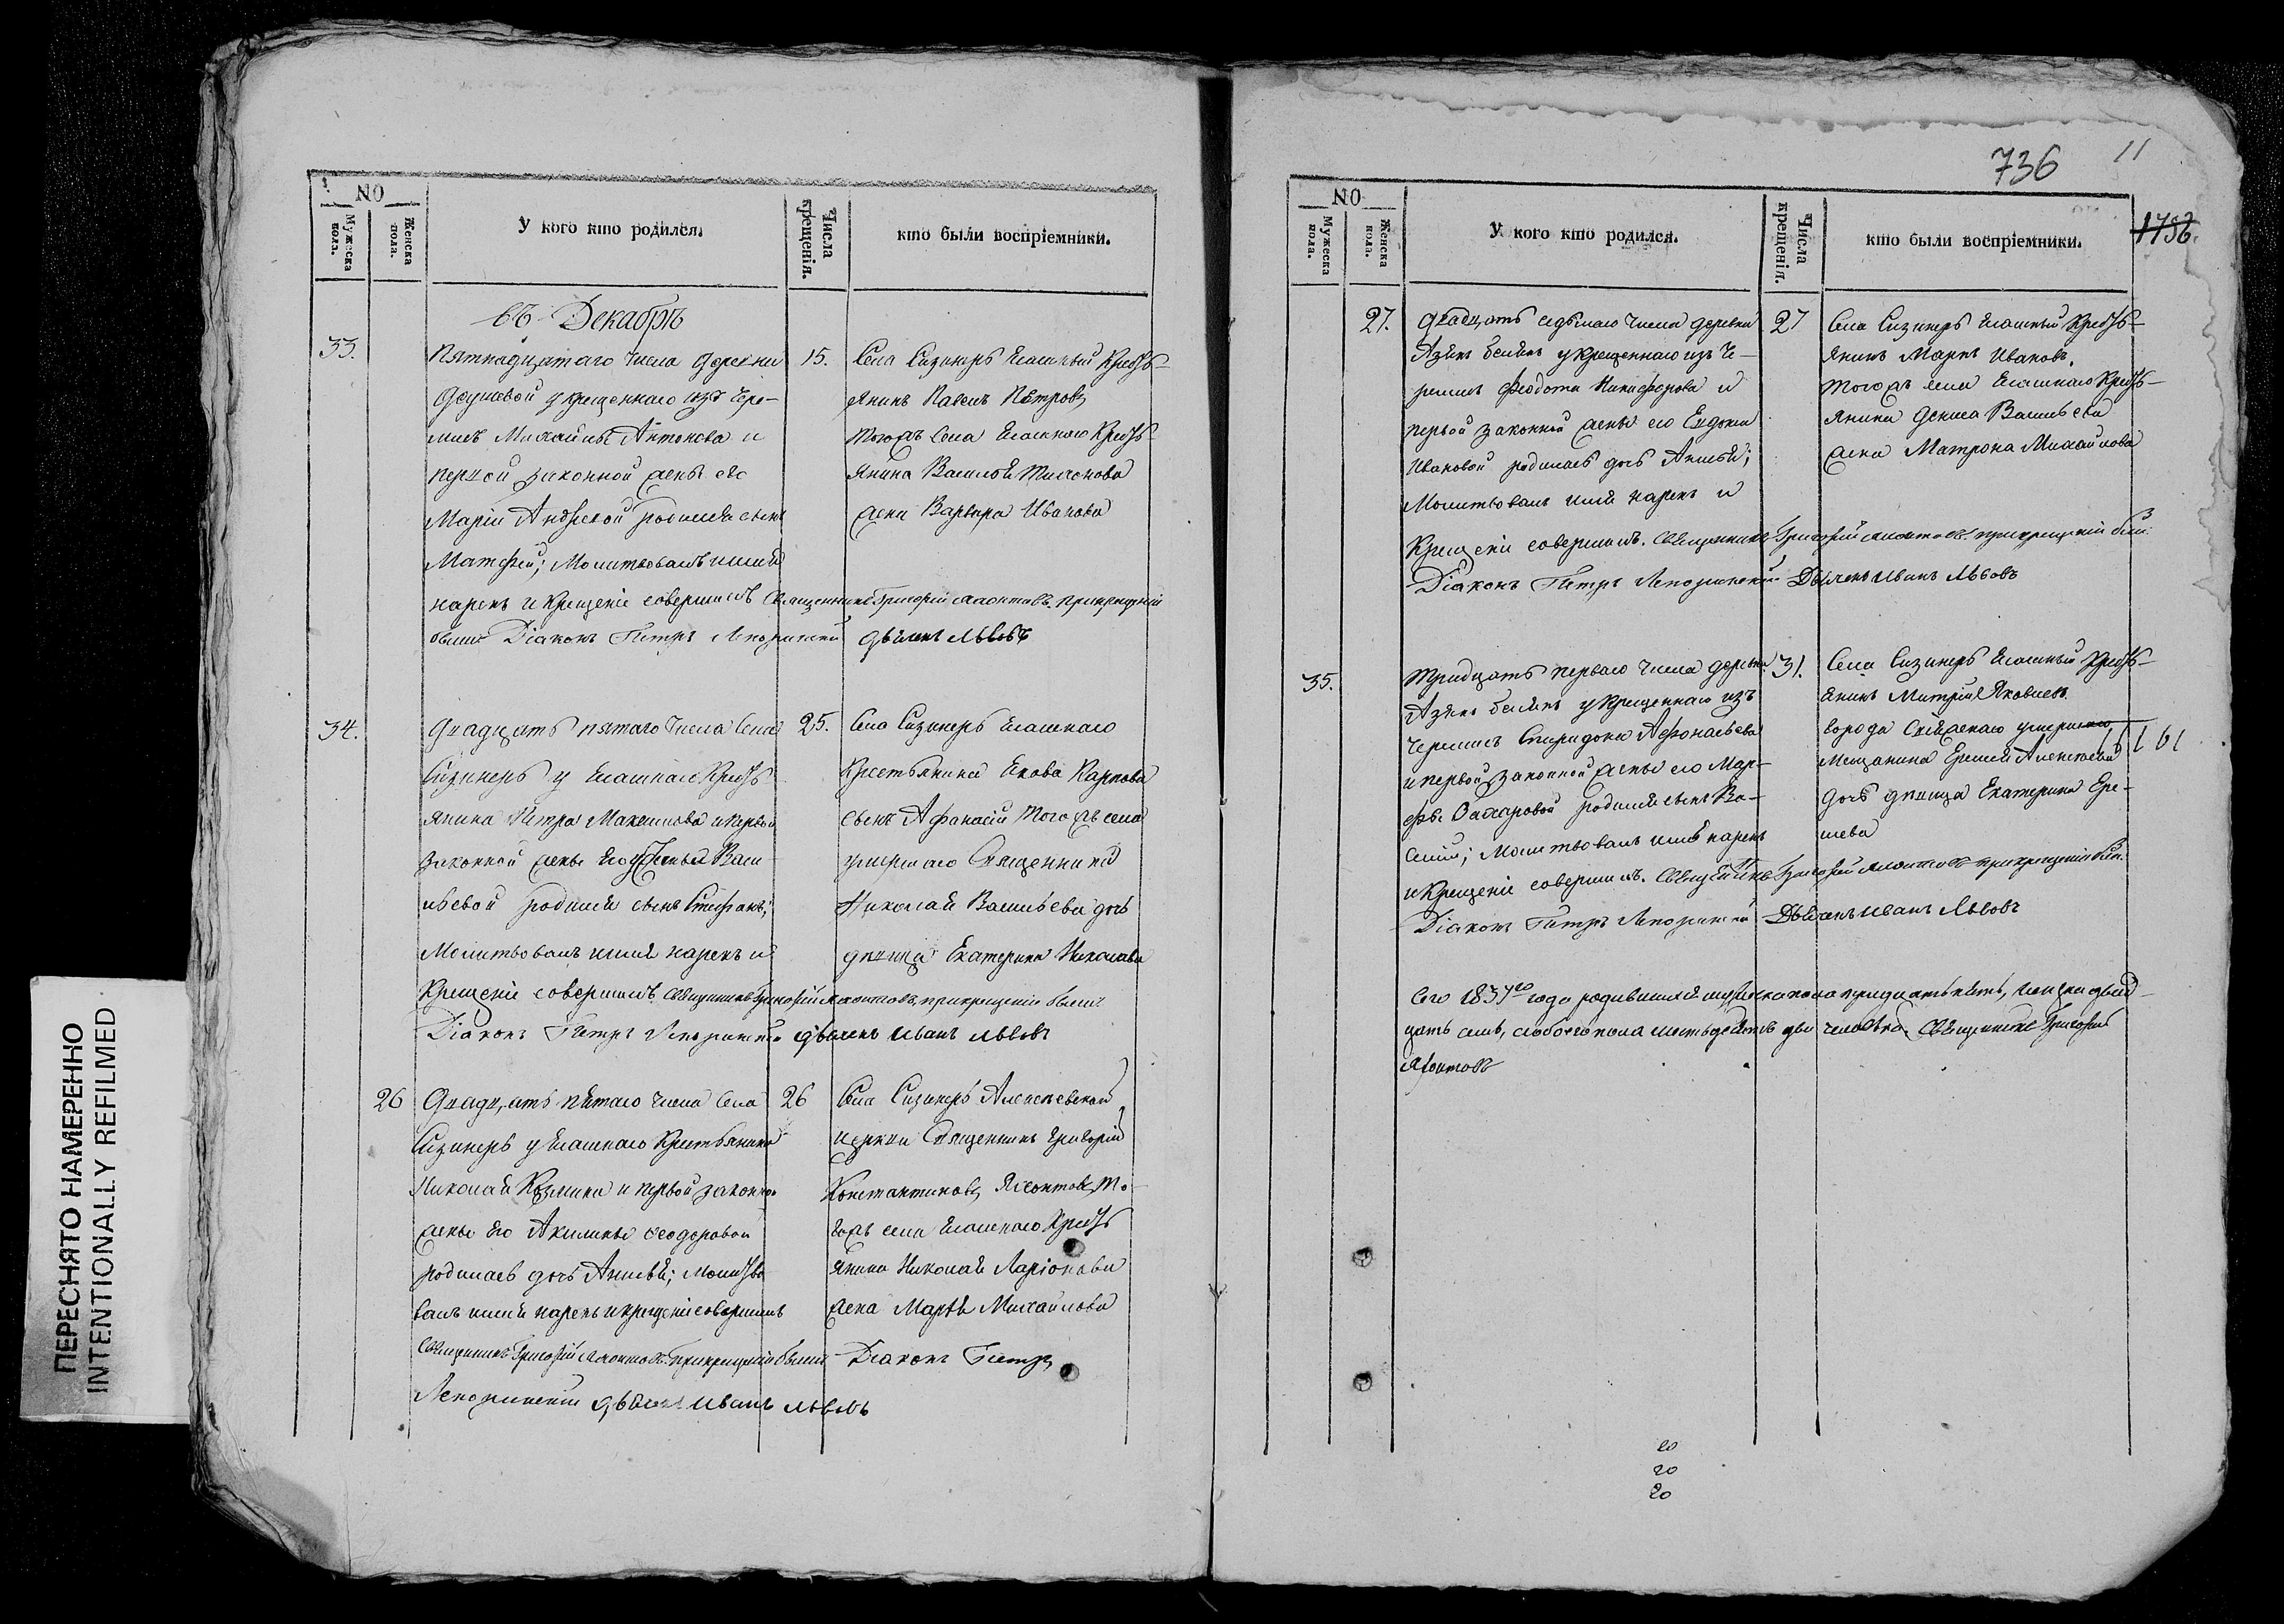 ПЕРЕСНЯТО НАМЕРЕННО
INTENTIONALLY REFILMED
NO
Мужеска пола.
Женска пола.
У кого кто родился.
Числа крещенія.
кто были воспріемники.
въ Декабрѣ
33.
Пятнадцатаго числа деревни
укрещеннаго изъ Чере-
мисъ Михайлы Антонова и
первой законной жены его
Маріи Андреевой родился сынъ
Матфей; Молитвовалъ имя
нарекъ и Крещеніе совершилъ Священникъ Григорій при крещеніи
были Діаконъ Петръ дьячекъ Львовъ
15.
Села Сизинеръ Ясашный Кресть-
янинъ Павелъ Петровъ
тогожъ Села Ясашнаго Кресть-
янина Василья Тихонова
жена Варвара Иванова
34.
Двадцать пятаго числа Села
Сизинеръ у Ясашнаго Кресть-
янина Петра Максимова и первой
законной жены его Васи-
льевой родился сынъ Стефанъ;
Молитвовалъ имя нарекъ и
Крещеніе совершилъ Священникъ Григорій при крещеніи были
Діаконъ Петръ дьячекъ Иванъ Львовъ
25.
Села Сизинеръ Ясашнаго
Крестьянина Якова Карпова
сынъ Афанасій тогожъ села
умершаго Священника
Николая Васильева дочь
девица Екатерина Николаева
26
Двадцать пятаго числа Села
Сизинеръ у Ясашнаго Крестьянина
Николая Козмина и первой законной
жены его Акилины Феодоровой
родилась дочь Анисья; Молитво-
валъ имя нарекъ и крещеніе совершилъ
Священникъ Григорій при крещеніи были Діаконъ Петръ
дьячекъ Иванъ Львовъ
26
Села Сизинеръ Алексѣевской
церкви Священникъ Григорій
Константиновъ то-
гожъ села Ясашнаго Кресть-
янина Николая Ларіонова
жена Марѳа Михайлова
736
11
1736.
NO
Мужеска пола.
Женска пола.
У кого кто родился.
Числа крещенія.
кто были воспріемники.
27.
Двадцать седьмаго числа деревни
укрещеннаго изъ Че-
ремисъ Феодота Никифорова и
первой законной жены его Евдокіи
Ивановой родилась дочь Анисья;
Молитвовалъ имя нарекъ и
Крещеніе совершилъ. Священникъ Григорій при крещеніи были
Діаконъ Петръ Дьячекъ Иванъ Львовъ
27
Села Сизинеръ Ясашный Кресть-
янинъ Маркъ Ивановъ,
тогожъ села Ясашнаго Кресть-
янина Дениса Васильева
жена Матрона Михайлова
35.
Тридцать перваго числа деревни
укрещеннаго изъ
Черемисъ Спиридона Афонасьева
и первой законной жены его Мар-
фы Захаровой родился сынъ Ва-
силій; Молитвовалъ имя нарекъ
и Крещеніе совершилъ. Священникъ Григорій при крещеніи были
Діаконъ Петръ Дьячекъ Иванъ Львовъ
31.
Села Сизинеръ Ясашный Кресть-
янинъ Митрій Яковлевъ.
города умершаго
Мещанина Алексеева
дочь девица Екатерина Ере-
меева
Сего года родившихся мужеска пола тридцать пять, женска двад-
цать семь, а обоего пола шестьдесятъ два человѣка. Священникъ Григорій
20
20
20